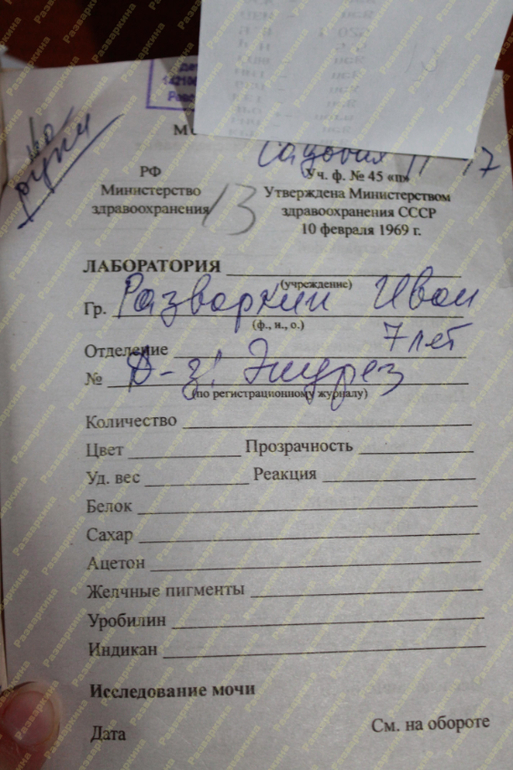 на руки
Садовая 11 17
РФ
Министерство
здравоохранения
13
Уч. ф. № 45 «п»
Утверждена Министерством
здравоохранения СССР
10 февраля 1969 г.
ЛАБОРАТОРИЯ
(учреждение)
Гр. Разваркин Иван
(ф., и., о.)
7 лет
Отделение
№ Д-з: Энурез
(по регистрационному журналу)
Количество
Цвет Прозрачность
Уд. вес Реакция
Белок
Сахар
Ацетон
Желчные пигменты
Уробилин
Индикан
Исследование мочи
Дата См. на обороте
Разваркина